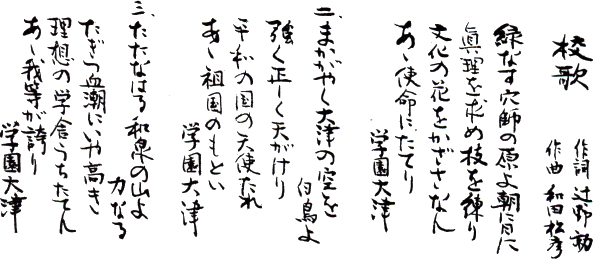 校歌
作詞 辻野 勃
作曲 和田松彦
緑なす穴師の原よ朝に日に
眞理を求め枝を練り
文化の花をかざさなん
あゝ使命にたてり
学園大津
二、まかがやく大津の空を
白鳥よ
強く正しく天がけり
平和の国の天使たれ
あゝ祖国のもとい
学園大津
三、たたなはる和泉の山よ
力なる
たぎつ血潮にいや高き
理想の学舎うちたてん
あゝ我等が誇り
学園大津